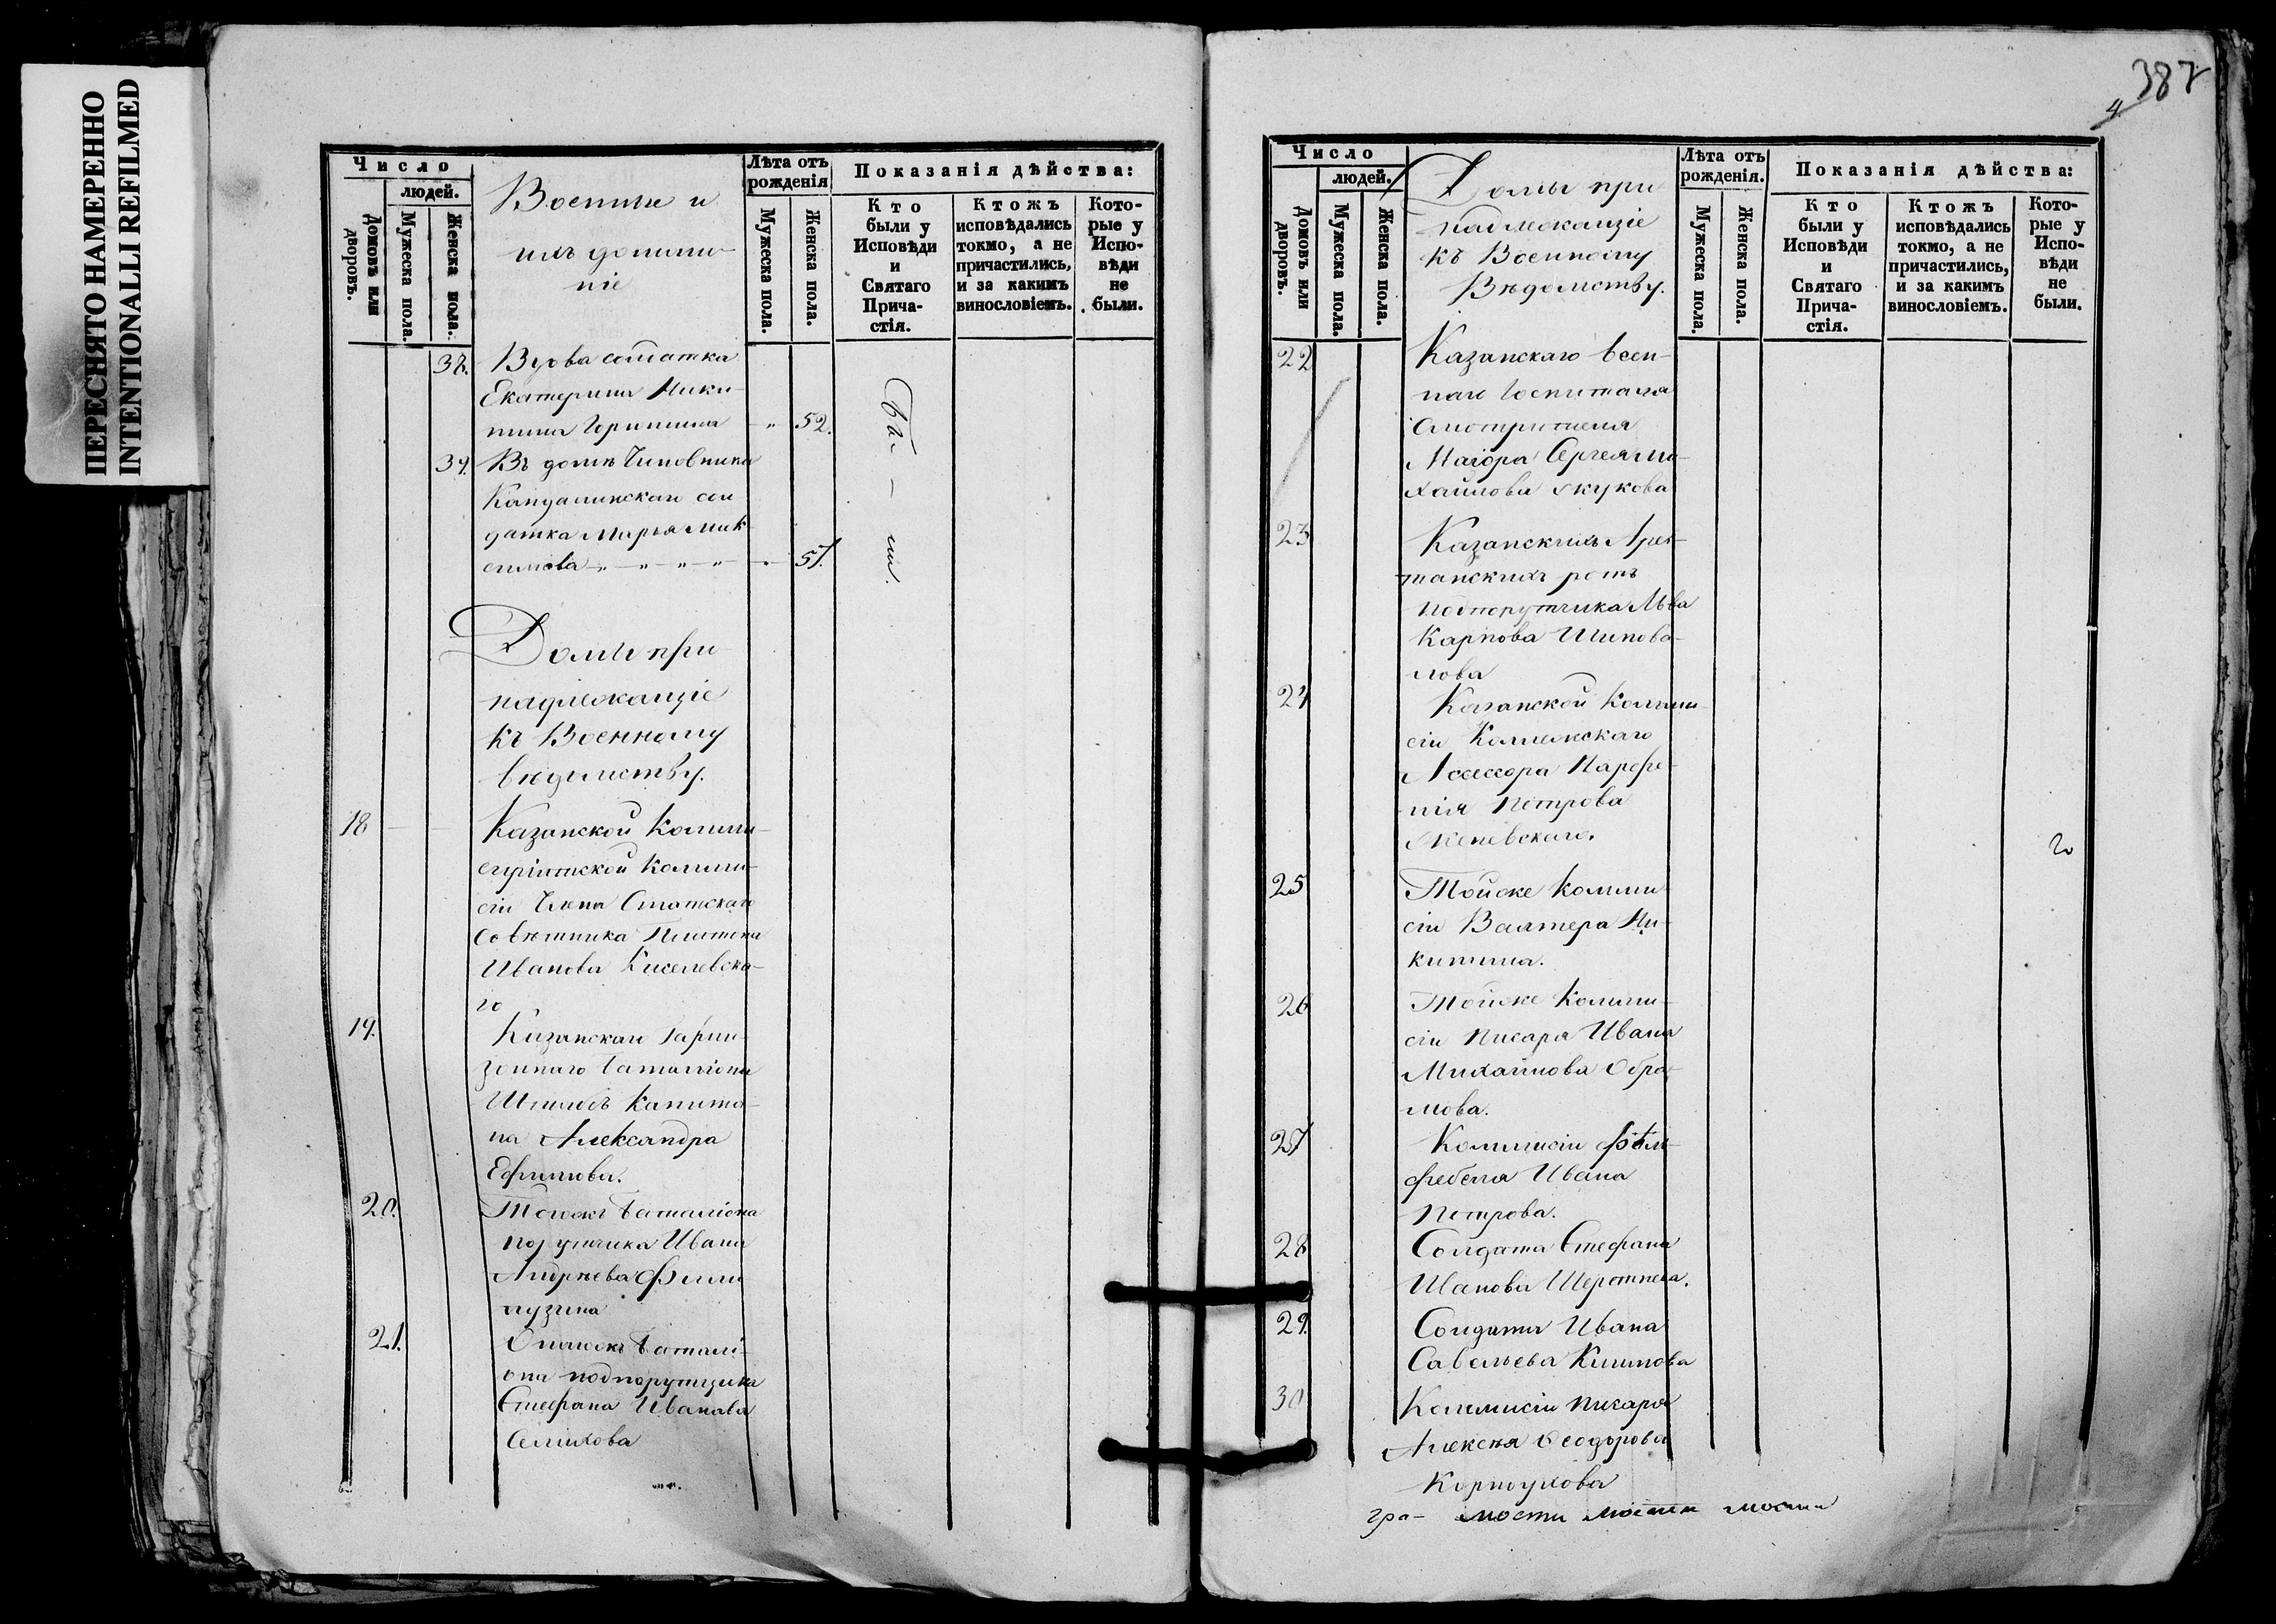 ПЕРЕСНЯТО НАМЕРЕННО
INTENTIONALLI REFILMED
Число
людей.
Домовъ или дворовъ.
Мужеска пола.
Женска пола.
Военные и
ихъ домаш-
ніе
Лѣта отъ рожденія
Мужеска пола.
Женска пола.
Показанія дѣйства:
Кто были у Исповѣди и Святаго Прича- стія.
Ктожъ исповѣдались токмо, а не причастились, и за какимъ винословіемъ.
Кото- рые у Испо- вѣди не были.
38. Вдова солдатка
Екатерина Ники-
тина 52.
39. Въ домѣ Чиновника
сол
датка Марья Мак-
симова 57.
Бы - ли.
Домы при
надлежащіе
къ Военному
вѣдомству.
18 Казанской Комми-
Комми-
сіи Члена Статскаго
Совѣтника Платона
Иванова Киселевска-
го
19. Казанскаго Гарни
зоннаго баталіона
Штабсъ Капита-
на Александра
Ефимова.
20. Тогожъ баталіона
порутчика Ивана
Андрѣева
21. Баталі-
она подпорутчика
Стефана Иванова
387
4
Число
людей.
Домовъ или дворовъ.
Мужеска пола.
Женска пола.
Домы при
надлежащіе
къ Военному
Вѣдомству.
Лѣта отъ рожденія.
Мужеска пола.
Женска пола.
Показанія дѣйства:
Кто были у Исповѣди и Святаго Прича- стія.
Ктожъ исповѣдались токмо, а не причастились, и за какимъ винословіемъ.
Кото- рые у Испо- вѣди не были.
22 Казанскаго воен-
наго госпиталя
Смотрителя
Маіора Сергея Ми-
хайлова Жукова
23 Казанскихъ Арес-
танскихъ ротъ
подпорутчика Льва
Карпова Шипова-
лова
24 Казанской Комми-
сіи Колежскаго
Асессора Парфе-
нія Петрова
25 Тойже Комми
сіи Вахтера Ни-
китина.
26 Тойже Комми-
сіи Писаря Ивана
Михайлова Обра-
мова.
27 Коммисіи Фѣлд-
фебеля Ивана
Петрова.
28 Солдата Стефана
29. Солдата Ивана
Савельева Климова
30 Коммисіи писаря
Алексѣя Ѳеодорова
Корноухова
гра- мости мости мости